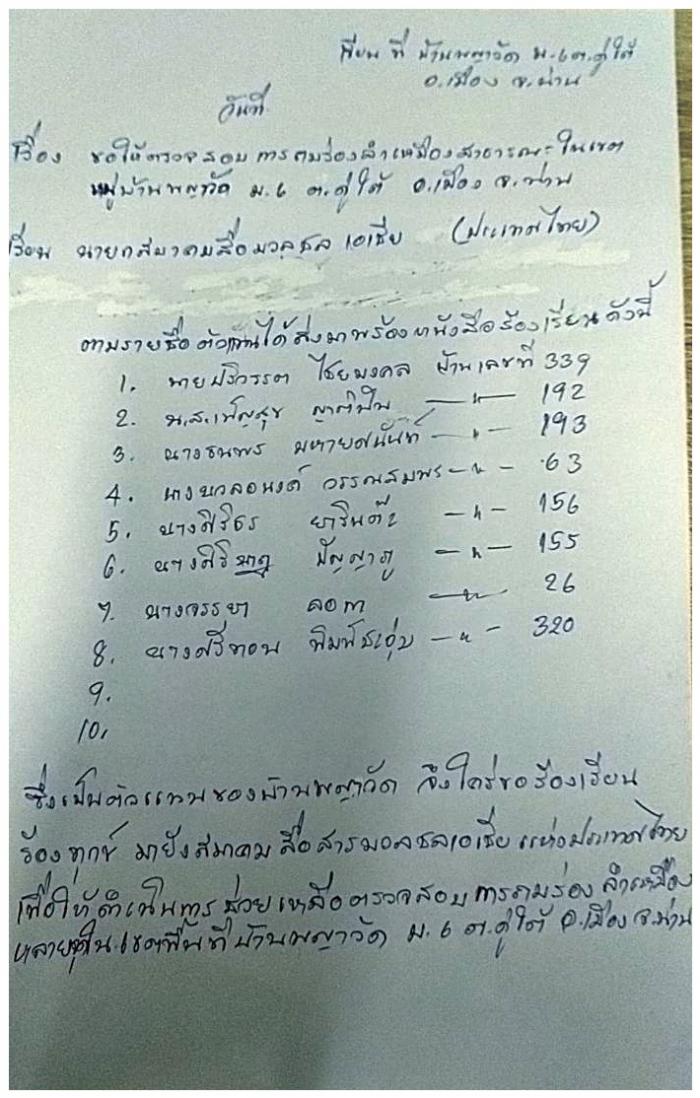 เขียน ที่ บ้านพญาวัด ม.6 ต.ดู่ใต้
อ.เมือง จ.น่าน
วันที่
เรื่อง ขอให้ตรวจสอบ การถมร่องลำเหมืองสาธารณะในเขต
หมู่บ้านพญาวัด ม.6 ต.ดู่ใต้ อ.เมือง จ.น่าน
เรียน นายกสมาคมสื่อมวลชล เอเชีย (ประเทศไทย)
ตามรายชื่อ ตัวแทนได้ส่งมาพร้อง หนังสือร้องเรียน ดังนี้
1. นายปริวรรต ไชยมงคล บ้านเลขที่ 339
2. น.ส.เพ็ญสุข ญาติฝั้น —"— 192
3. นางธนพร มหายศนันท์ —"— 193
4. นางนวลอนงค์ วรรณสมพร —"— 63
5. นางศิริธร ยารินต๊ะ —"— 156
6. นางศิริ ปัญญาภู —"— 155
7. นางจรรยา —"— 26
8. นางศรีทอน —"— 320
9.
10.
ซึ่งเป็นตัวแทนของบ้านพญาวัด จึงใคร่ขอร้องเรียน
ร้องทุกข์ มายังสมาคม สื่อสารมวลชลเอเชีย แห่งประเทศไทย
เพื่อให้ดำเนินการ ช่วยเหลือตรวจสอบ การถมร่อง ลำเหมือง
หลายจุดในเขตพื้นที่บ้านพญาวัด ม.6 ต.ดู่ใต้ อ.เมือง จ.น่าน